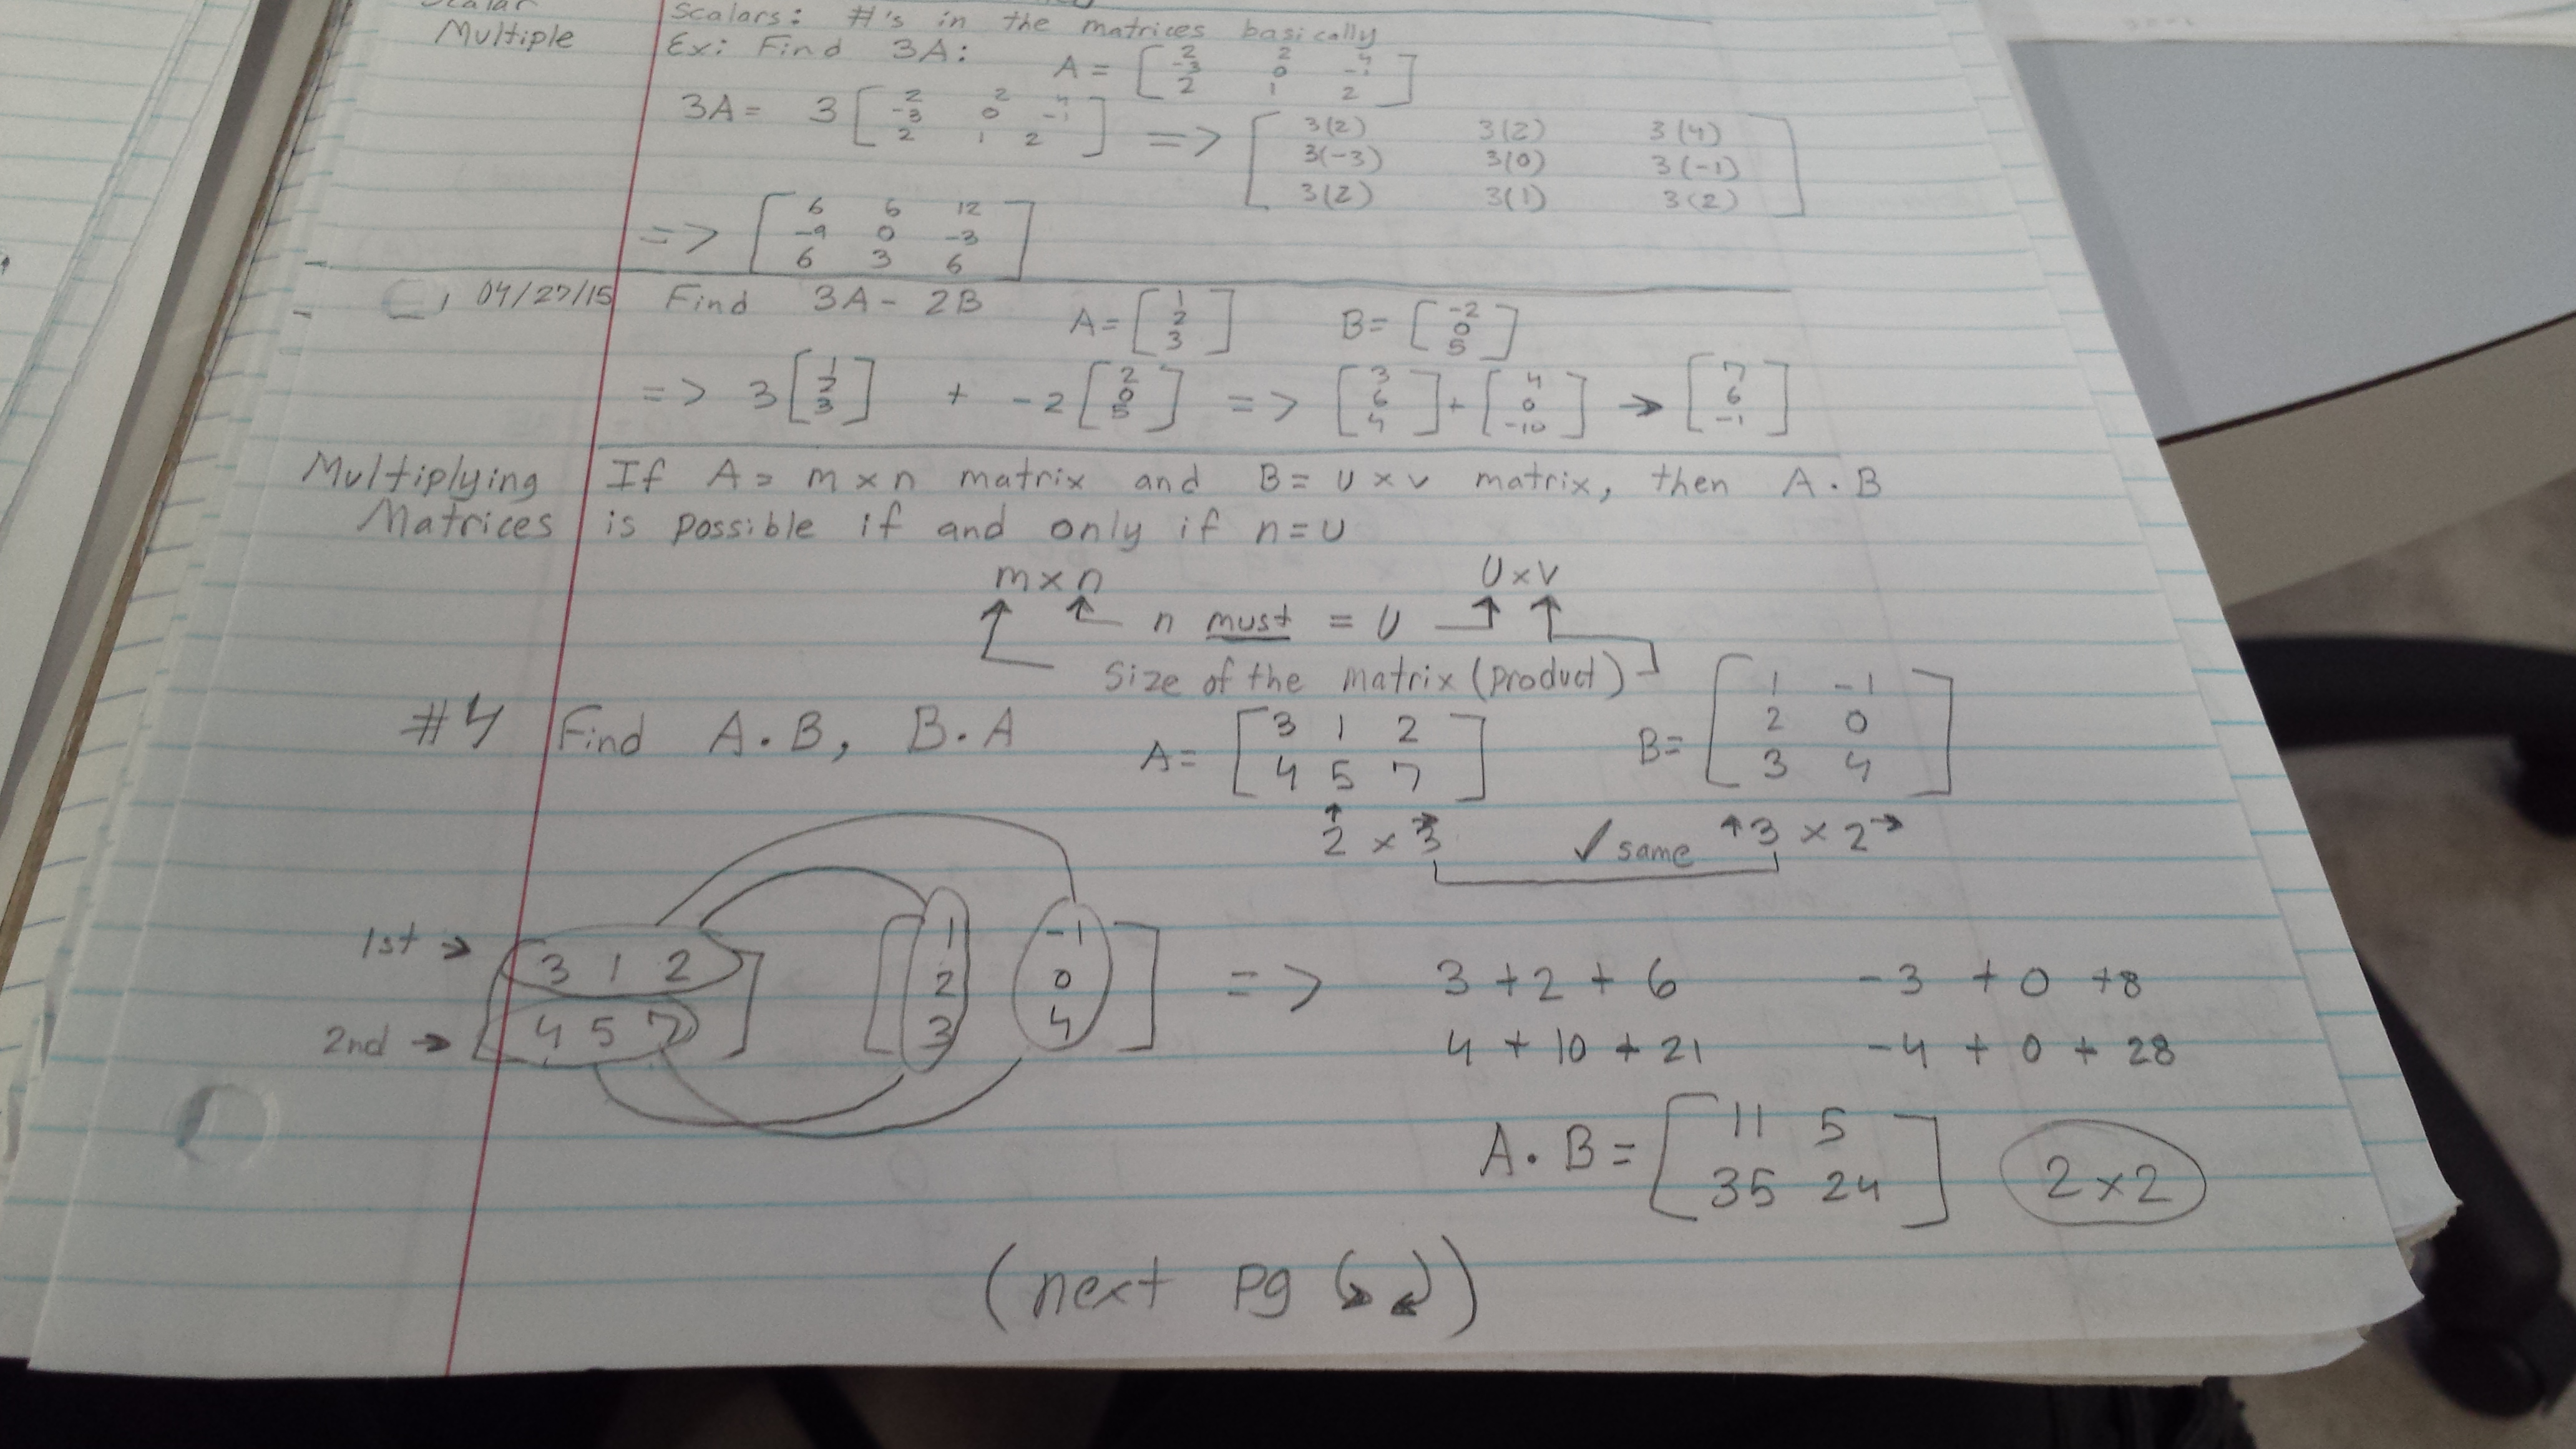 Scalar
Multiple
Scalars: #'s in the matrices basically
Ex: Find 3A: A = [ 2 2 4
-3 0 -1
2 1 2 ]
3A = 3 [ 2 2 4
-3 0 -1
2 1 2 ] => [ 3(2) 3(2) 3(4)
3(-3) 3(0) 3(-1)
3(2) 3(1) 3(2) ]
=> [ 6 6 12
-9 0 -3
6 3 6 ]
04/27/15 Find 3A - 2B A = [ 1
2
3 ] B = [ -2
0
5 ]
=> 3 [ 1
2
3 ] + -2 [ 2
0
5 ] => [ 3
6
4 ] + [ 4
0
-10 ] → [ 7
6
-1 ]
Multiplying
Matrices
If A = m x n matrix and B = u x v matrix, then A . B
is possible if and only if n = U
m x n U x v
↑ ↑ n must = U ↑ ↑
Size of the matrix (product)
#4 Find A . B, B . A A = [ 3 1 2
4 5 7 ] B = [ 1 -1
2 0
3 4 ]
↑ →
2 x 3 ✓ same ↑3 x 2→
1st → [ 3 1 2
2nd → 4 5 7 ] [ 1 -1
2 0
3 4 ] => 3 + 2 + 6 -3 + 0 + 8
4 + 10 + 21 -4 + 0 + 28
A . B = [ 11 5
35 24 ] 2 x 2
(next pg ↷)